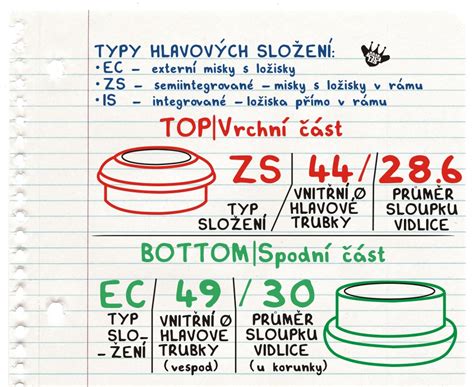 TYPY HLAVOVÝCH SLOŽENÍ:
• EC – externí misky s ložisky
• ZS – semiintegrované – misky s ložisky v rámu
• IS – integrované – ložiska přímo v rámu
TOP|Vrchní část
ZS 44/28.6
TYP SLOŽENÍ
VNITŘNÍ Ø HLAVOVÉ TRUBKY
PRŮMĚR SLOUPKU VIDLICE
BOTTOM|Spodní část
EC 49/30
TYP SLO- ŽENÍ
VNITŘNÍ Ø HLAVOVÉ TRUBKY (vespod)
PRŮMĚR SLOUPKU VIDLICE (u korunky)